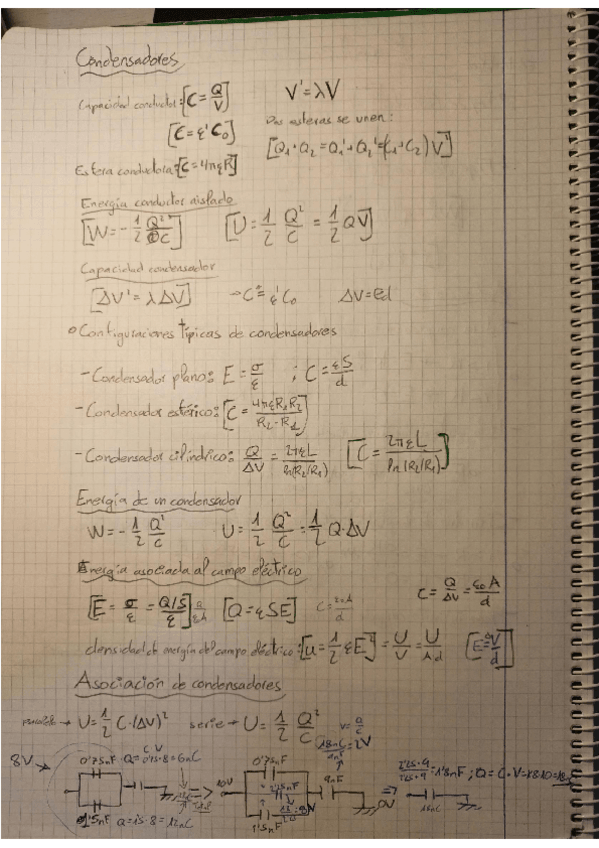 Condensadores
Capacidad conductor: [C = Q/V]
V' = λV
[C = ε'C₀]
Dos esferas se unen:
[Q₁+Q₂ = Q₁'+Q₂' = (C₁+C₂)V']
Esfera conductora: [C = 4πεR]
Energía conductor aislado
[W = -1/2 Q²/C] [U = 1/2 Q²/C = 1/2 QV]
Capacidad condensador
[ΔV' = λΔV] → C = ε'C₀ ΔV = Ed
Configuraciones típicas de condensadores
- Condensador plano: E = σ/ε ; C = εS/d
- Condensador esférico: [C = 4πεR₁R₂/R₂-R₁]
- Condensador cilíndrico: Q/ΔV = 2πεL/ln(R₂/R₁) [C = 2πεL/ln(R₂/R₁)]
Energía de un condensador
W = -1/2 Q²/C U = 1/2 Q²/C = 1/2 Q·ΔV
Energía asociada al campo eléctrico
C = Q/ΔV = ε₀A/d
[E = σ/ε = Q/S/ε] [Q = εSE] C = ε₀A/d
densidad de energía del campo eléctrico: [u = 1/2 εE²] = U/V = U/Ad [E = V/d]
Asociación de condensadores
paralelo → U = 1/2 C·(ΔV)² serie → U = 1/2 Q²/C V = Q/C
18nC/9nF = 2V
8V 0'75nF Q = 0'75·8 = 6nC => 10V 0'75nF 9nF 0V => 2'25·9/2'25+9 = 1'8nF ; Q = C·V = 1'8·10 = 18nC
1'5nF Q = 1'5·8 = 12nC 1'5nF 18nC